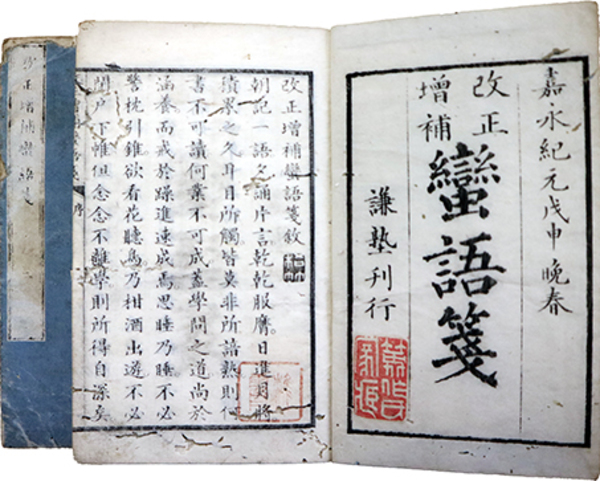 嘉永紀元戊申晩春
改正
增補
蠻語箋
謙塾刊行
改正增補蠻語箋敘
朝記一語夕誦片言乾乾服膺。日進月將
積累之久耳目所觸皆莫非所諳熟則何
書不可讀何業不可成蓋學問之道尚於
涵養而戒於躁進速成焉思睡乃睡不必
警枕引錐欲看花聽鳥乃柑酒出遊不必
閉戶下帷但念念不離學則所得自深矣
序
改正增補蠻語箋